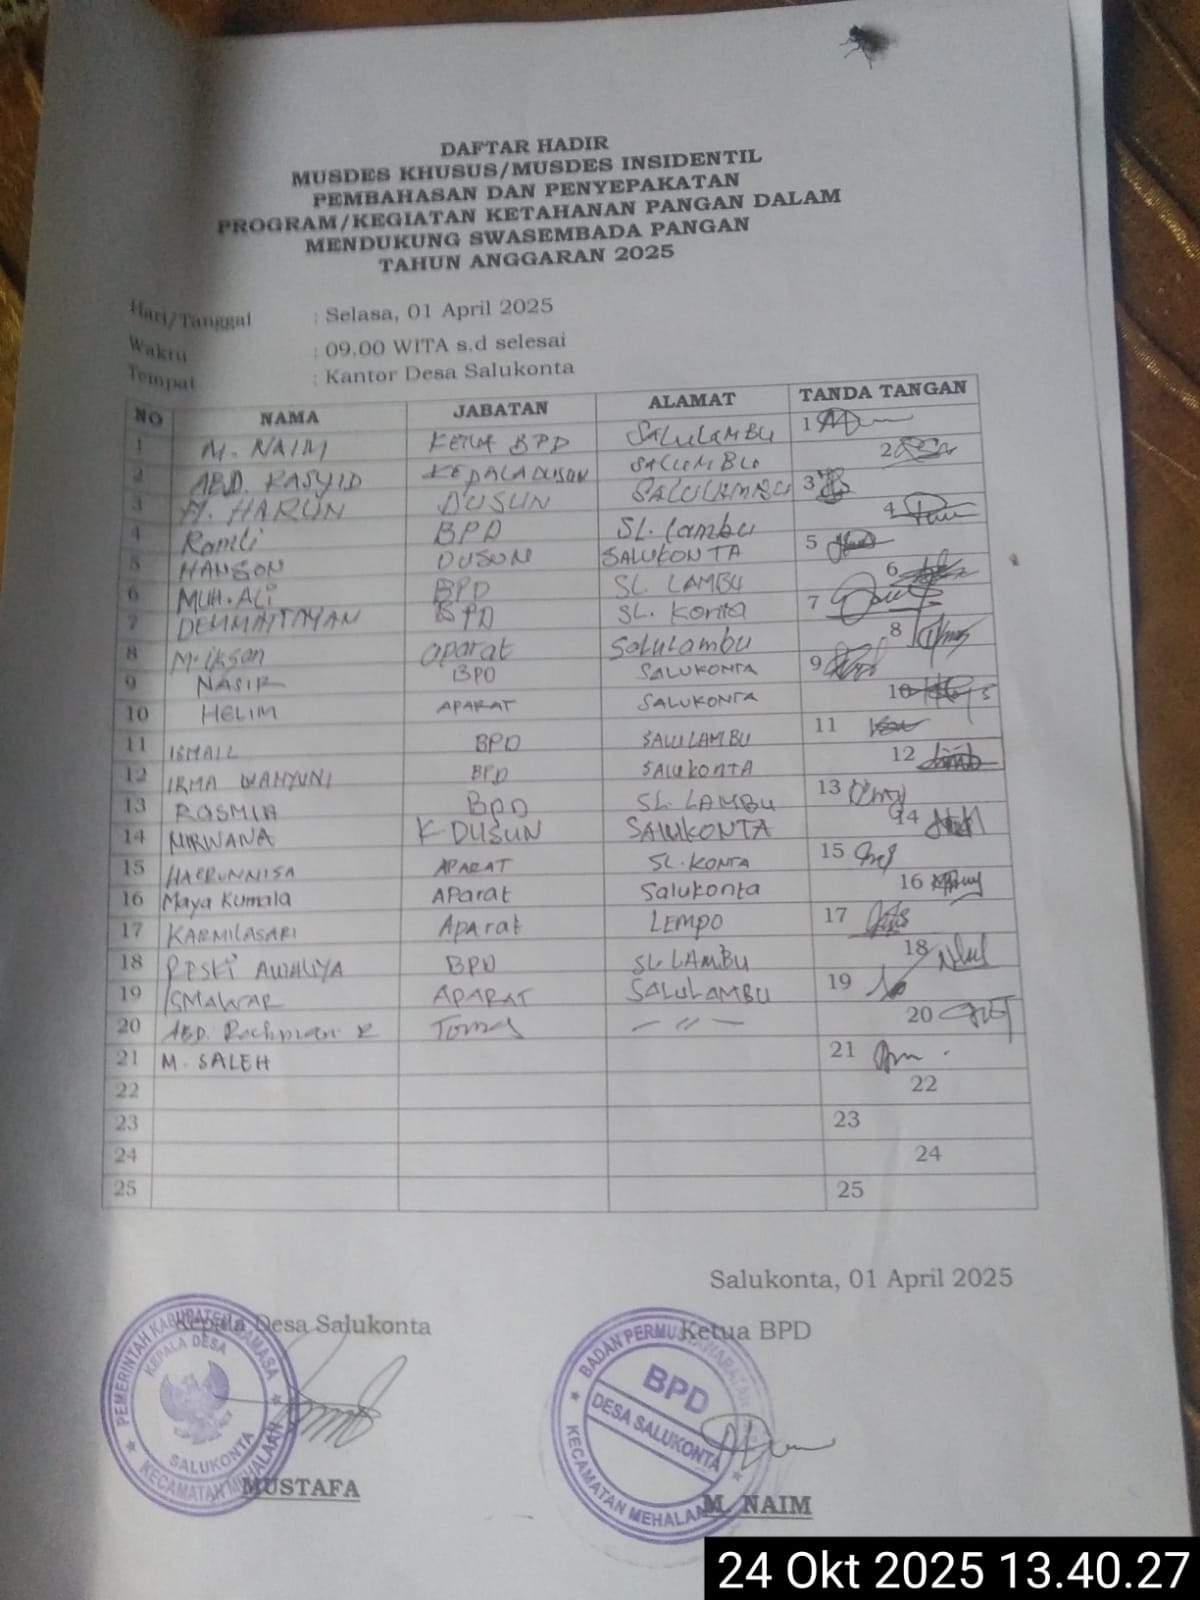 DAFTAR HADIR
MUSDES KHUSUS/MUSDES INSIDENTIL
PEMBAHASAN DAN PENYEPAKATAN
PROGRAM/KEGIATAN KETAHANAN PANGAN DALAM
MENDUKUNG SWASEMBADA PANGAN
TAHUN ANGGARAN 2025
Hari/Tanggal : Selasa, 01 April 2025
Waktu : 09.00 WITA s.d selesai
Tempat : Kantor Desa Salukonta
NO NAMA JABATAN ALAMAT TANDA TANGAN
1 M. NAIM KETUA BPD SALULAMBU 1
2 ABD. RASYID KEPALA DUSUN 2
3 H. HARUN DUSUN SALULAMBU 3
4 Ramli BPD SL. Lambu 4
5 HANSON DUSUN SALUKONTA 5
6 MUH. ALI BPD SL. LAMBU 6
7 DEMMATTAYAN BPD SL. Konta 7
8 M. Iksan aparat Salulambu 8
9 NASIR BPD SALUKONTA 9
10 HELIM APARAT SALUKONTA 10
11 ISMAIL BPD SALULAMBU 11
12 IRMA WAHYUNI BPD SALUKONTA 12
13 ROSMIA BPD SL. LAMBU 13
14 NIRWANA K DUSUN SALUKONTA 14
15 HAERUNNISA APARAT SL. KONTA 15
16 Maya Kumala APARAT Salukonta 16
17 KARMILASARI Aparat LEMPO 17
18 RESKI AWALIYA BPD SL. LAMBU 18
19 ISMAWAR APARAT SALULAMBU 19
20 ABD. Rachman R Tomas — 〃 — 20
21 M. SALEH 21
22 22
23 23
24 24
25 25
Salukonta, 01 April 2025
Kepala Desa Salukonta Ketua BPD
PEMERINTAH KABUPATEN MAMASA
KEPALA DESA
SALUKONTA
KECAMATAN MEHALAAN
BADAN PERMUSYAWARATAN
BPD
DESA SALUKONTA
KECAMATAN MEHALAAN
MUSTAFA M. NAIM
24 Okt 2025 13.40.27